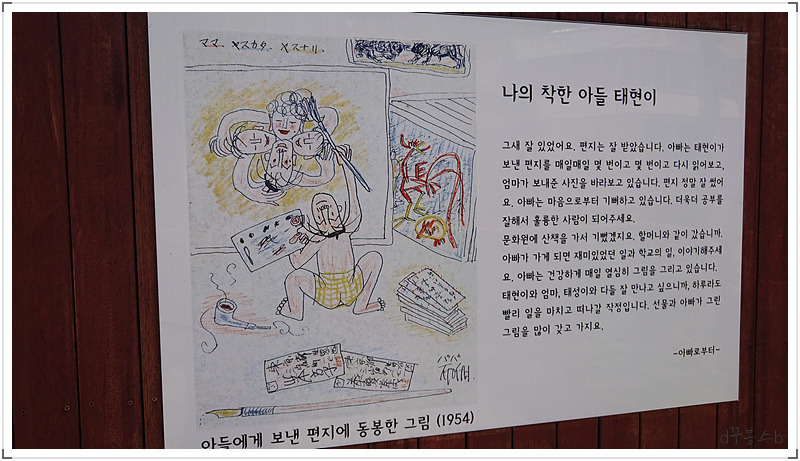 ママ. ヤスカタ. ヤスナリ.
나의 착한 아들 태현이
그새 잘 있었어요. 편지는 잘 받았습니다. 아빠는 태현이가
보낸 편지를 매일매일 몇 번이고 몇 번이고 다시 읽어보고,
엄마가 보내준 사진을 바라보고 있습니다. 편지 정말 잘 썼어
요. 아빠는 마음으로부터 기뻐하고 있습니다. 더욱더 공부를
잘해서 훌륭한 사람이 되어주세요.
문화원에 산책을 가서 기뻤겠지요. 할머니와 같이 갔습니까.
아빠가 가게 되면 재미있었던 일과 학교의 일, 이야기해주세
요. 아빠는 건강하게 매일 열심히 그림을 그리고 있습니다.
태현이와 엄마, 태성이와 다들 잘 만나고 싶으니까, 하루라도
빨리 일을 마치고 떠나갈 작정입니다. 선물과 아빠가 그린
그림을 많이 갖고 가지요.
-아빠로부터-
パパ
아들에게 보낸 편지에 동봉한 그림 (1954)